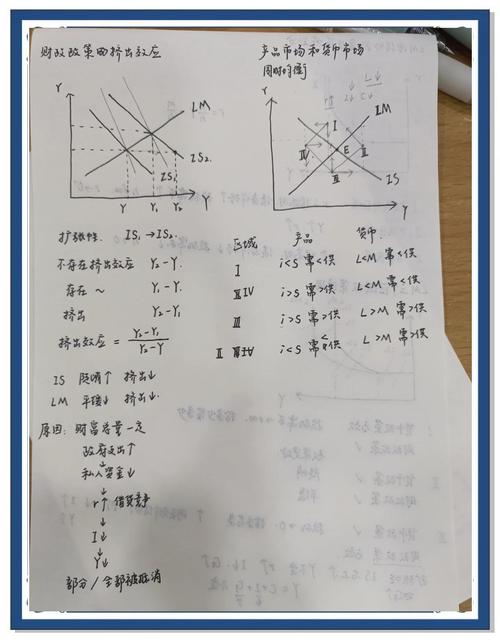 财政政策的挤出效应
r
LM
IS₂
IS₁
Y Y₁ Y₂ Y
扩张性. IS₁→IS₂.
不存在挤出效应 Y₂-Y.
存在~ Y₁-Y.
挤出 Y₂-Y₁
挤出效应 = Y₂-Y₁ / Y₂-Y
IS 陡峭↑ 挤出↓
LM 平缓↓ 挤出↓
原因: 财富总量一定
政府支出↑
↓
私人资金↓
↓
r↑ 借贷竞争
↓
I↓
↓
Y↓
部分/全部被取消
产品市场和货币市场
同时均衡
r
LM
I
E
II
III
IS
Y
区域 产品 货币.
I i<S 需<供 L<M 需<供
i>S 需>供 L<M 需<供
III i>S 需>供 L>M 需>供
II i<S 需<供 L>M 需>供